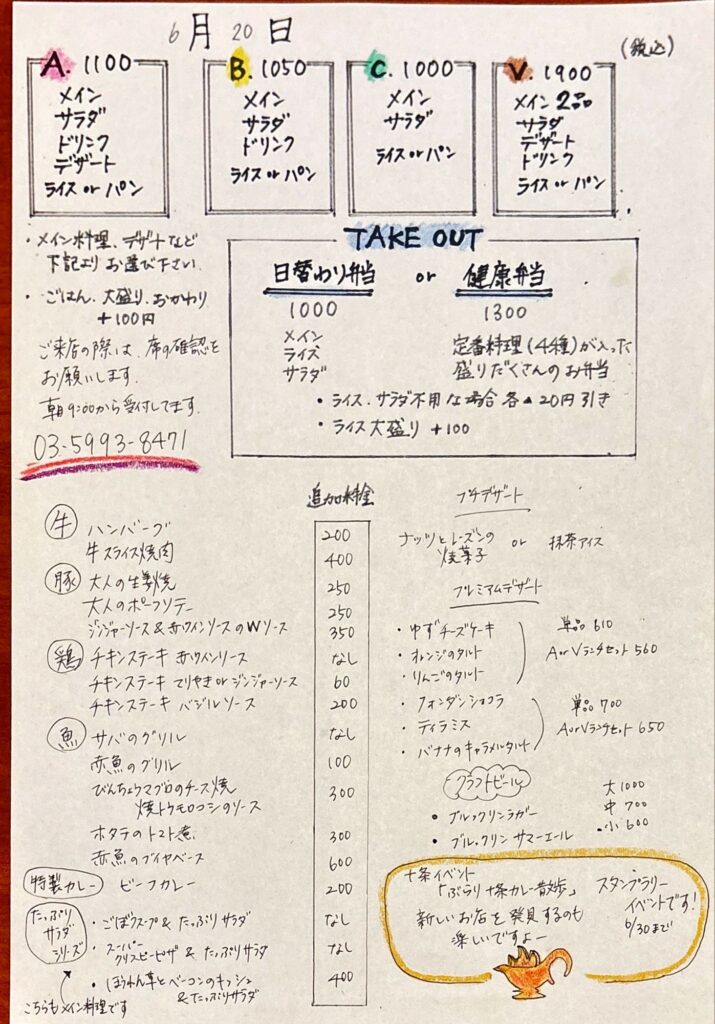 6月20日
(税込)
A. 1100
メイン
サラダ
ドリンク
デザート
ライス or パン
B. 1050
メイン
サラダ
ドリンク
ライス or パン
C. 1000
メイン
サラダ
ライス or パン
V. 1900
メイン 2品
サラダ
デザート
ドリンク
ライス or パン
・メイン料理、デザートなど
下記よりお選び下さい。
・ごはん、大盛り、おかわり
+100円
ご来店の際は、席の確認を
お願いします。
朝9:00から受付してます。
03-5993-8471
TAKE OUT
日替わり弁当 or 健康弁当
1000
メイン
ライス
サラダ
1300
定番料理(4種)が入った
盛りだくさんのお弁当
・ライス、サラダ不用な場合各▲20円引き
・ライス大盛り +100
追加料金
牛 ハンバーグ 200
牛スライス焼肉 400
豚 大人の生姜焼 250
大人のポークソテー 250
ジンジャーソース&赤ワインソースのWソース 350
鶏 チキンステーキ 赤ワインソース なし
チキンステーキ てりやき or ジンジャーソース 60
チキンステーキ バジルソース 200
魚 サバのグリル なし
赤魚のグリル 100
びんちょうマグロのチーズ焼 300
焼トウモロコシのソース
ホタテのトマト煮 300
赤魚のブイヤベース 600
特製カレー ビーフカレー 200
たっぷり
サラダ
シリーズ
・ごぼうスープ & たっぷりサラダ なし
・スーパー
クリスピーピザ & たっぷりサラダ なし
・ほうれん草とベーコンのキッシュ 400
&たっぷりサラダ
こちらもメイン料理です
プチデザート
ナッツとレーズンの
焼菓子 or 抹茶アイス
プレミアムデザート
・ゆずチーズケーキ
・オレンジのタルト
・りんごのタルト
単品 610
A or Vランチセット 560
・フォンダンショコラ
・ティラミス
・バナナのキャラメルタルト
単品 700
A or Vランチセット 650
クラフトビール
・ブルックリンラガー
・ブルックリン サマーエール
大 1000
中 700
・小 600
十条イベント
「ぶらり十条カレー散歩」
新しいお店を発見するのも
楽しいですよー
スタンプラリー
イベントです!
6/30まで